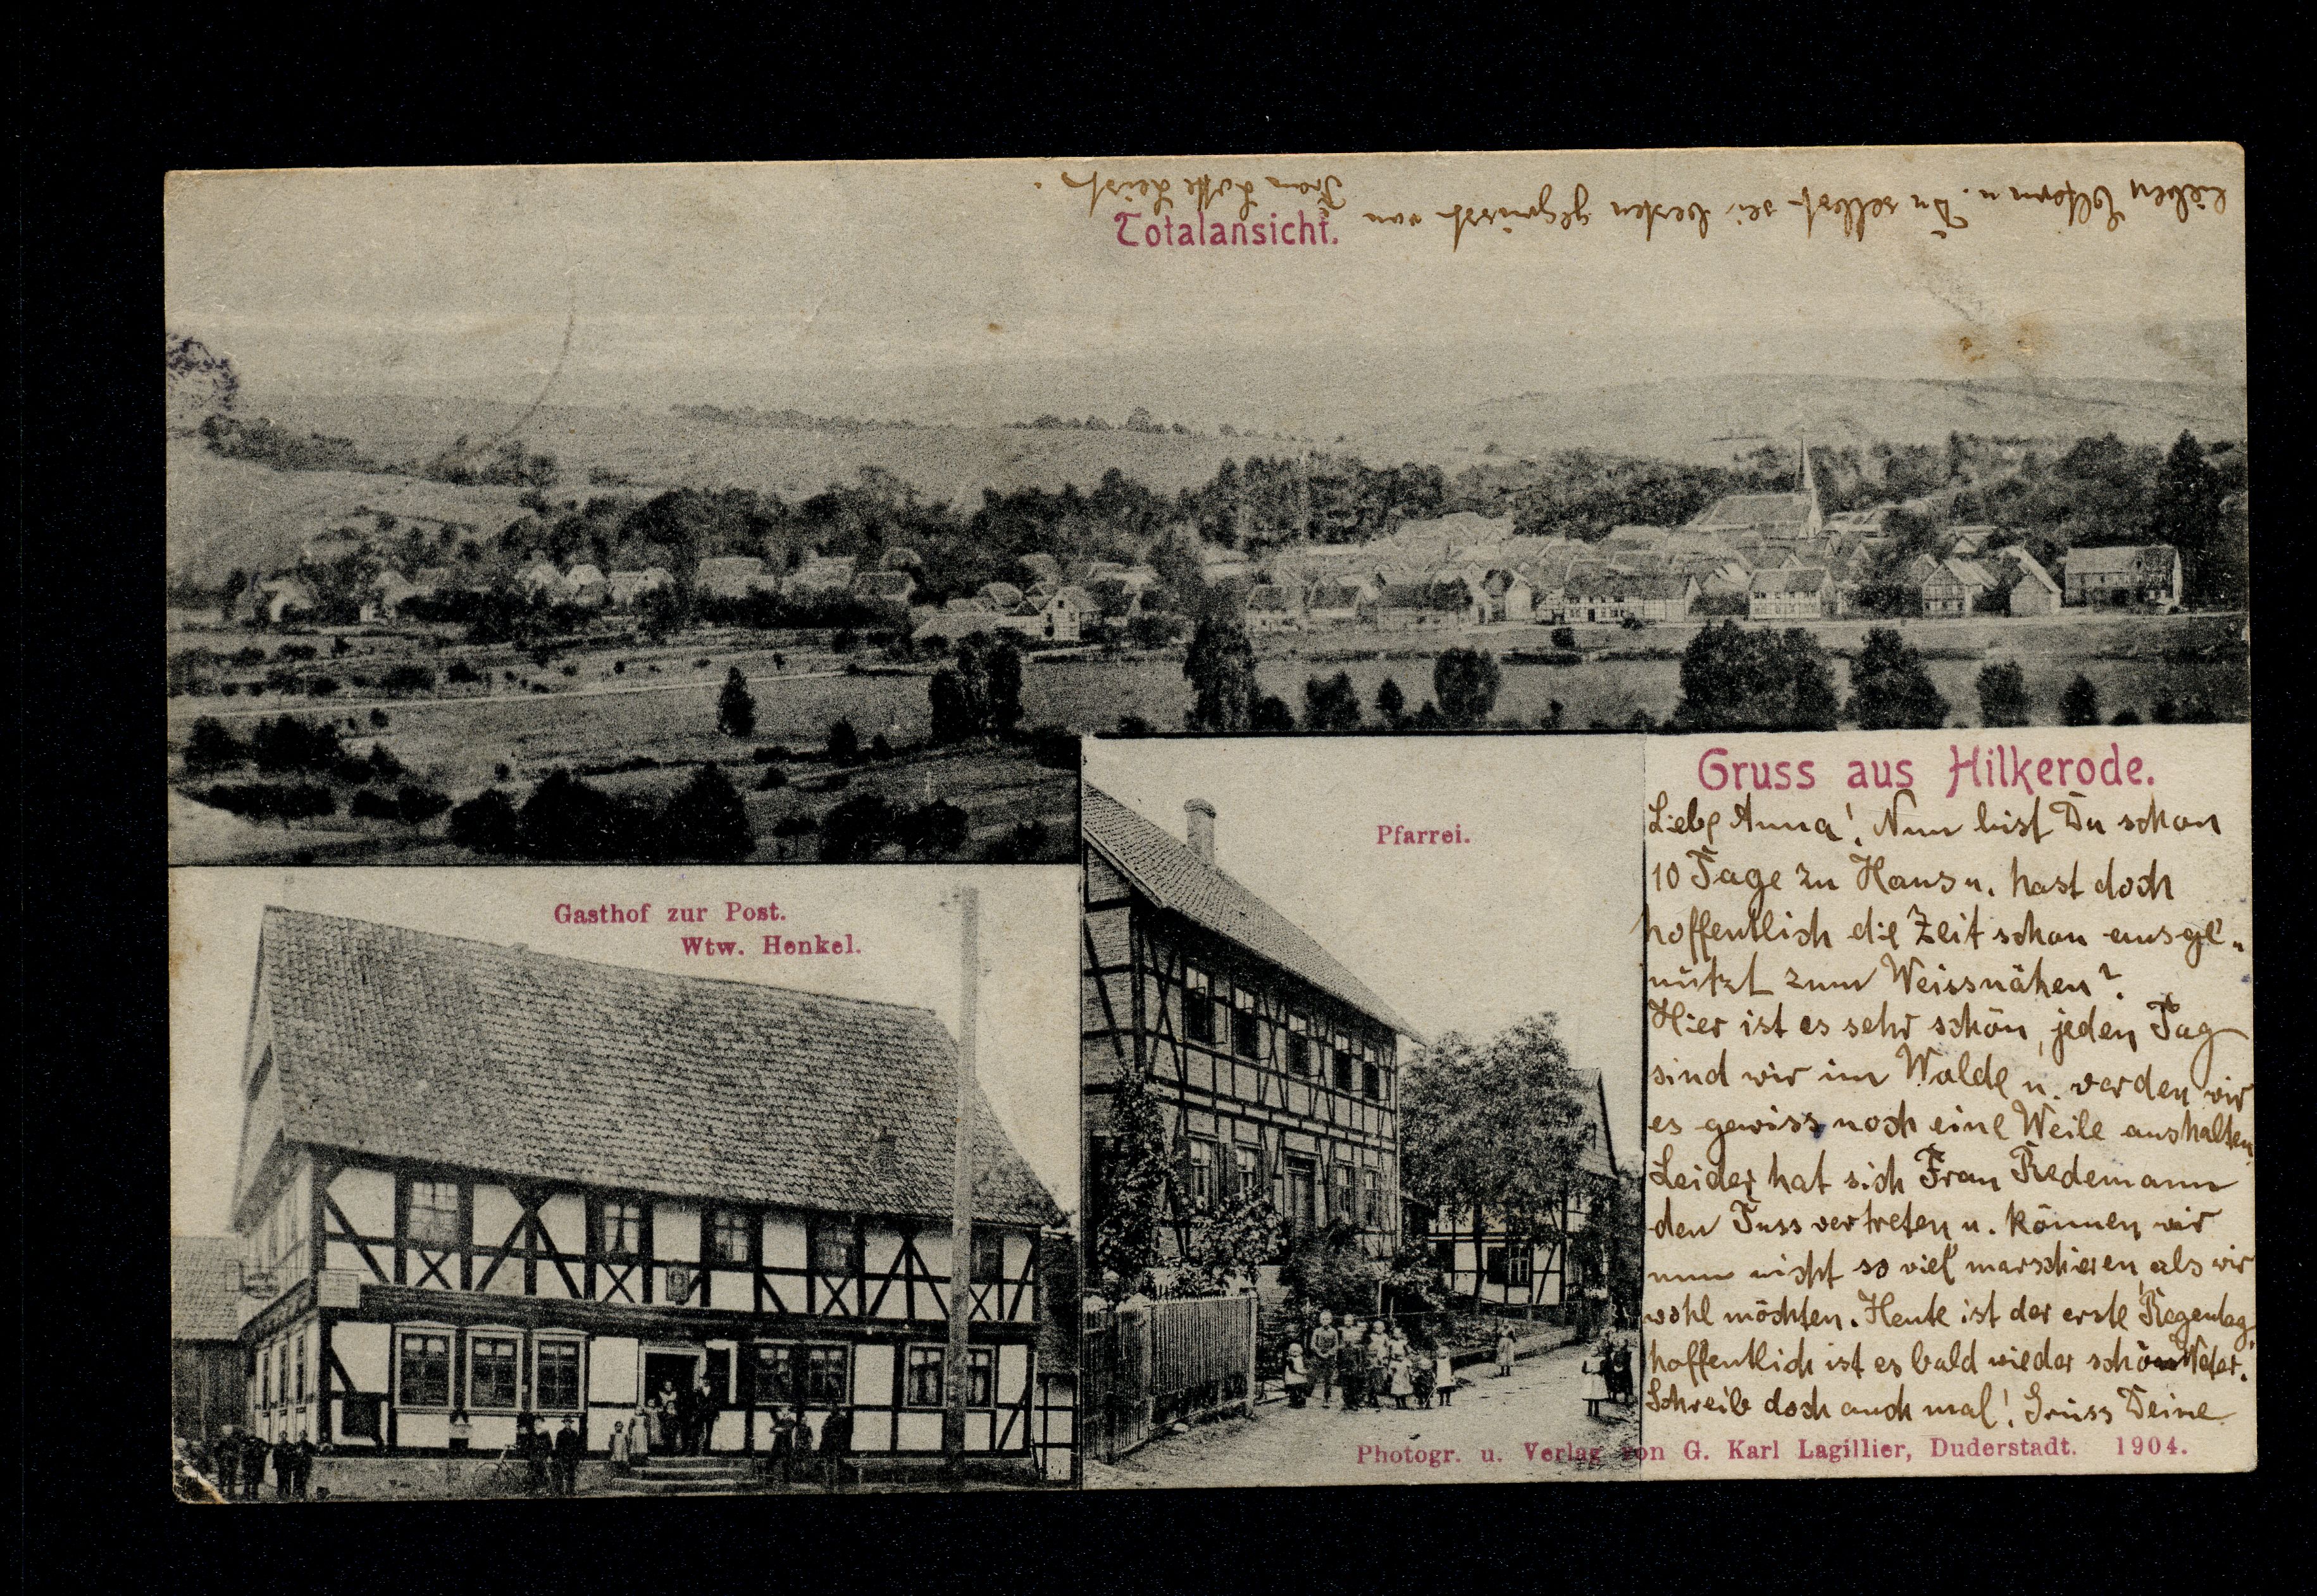 Totalansicht.
Gruss aus Hilkerode.
Pfarrei.
Gasthof zur Post.
Wtw. Henkel.
Liebe Anna! Nun bist Du schon
10 Tage zu Haus u. hast doch
hoffentlich die Zeit schon ausge-
nützt zum Weissnähen?
Hier ist es sehr schön, jeden Tag
sind wir im Walde u. werden wir
es gewiss noch eine Weile aushalten.
Leider hat sich Frau Redemann
den Fuss vertreten u. können wir
nun nicht so viel marschieren, als wir
wohl möchten. Heute ist der erste Regentag,
hoffentlich ist es bald wieder schön
Schreib doch auch mal! Gruss Deine
lieben Eltern u. Du selbst sei bestens gegrüsst von
Frau
Photogr. u. Verlag von G. Karl Lagillier, Duderstadt. 1904.